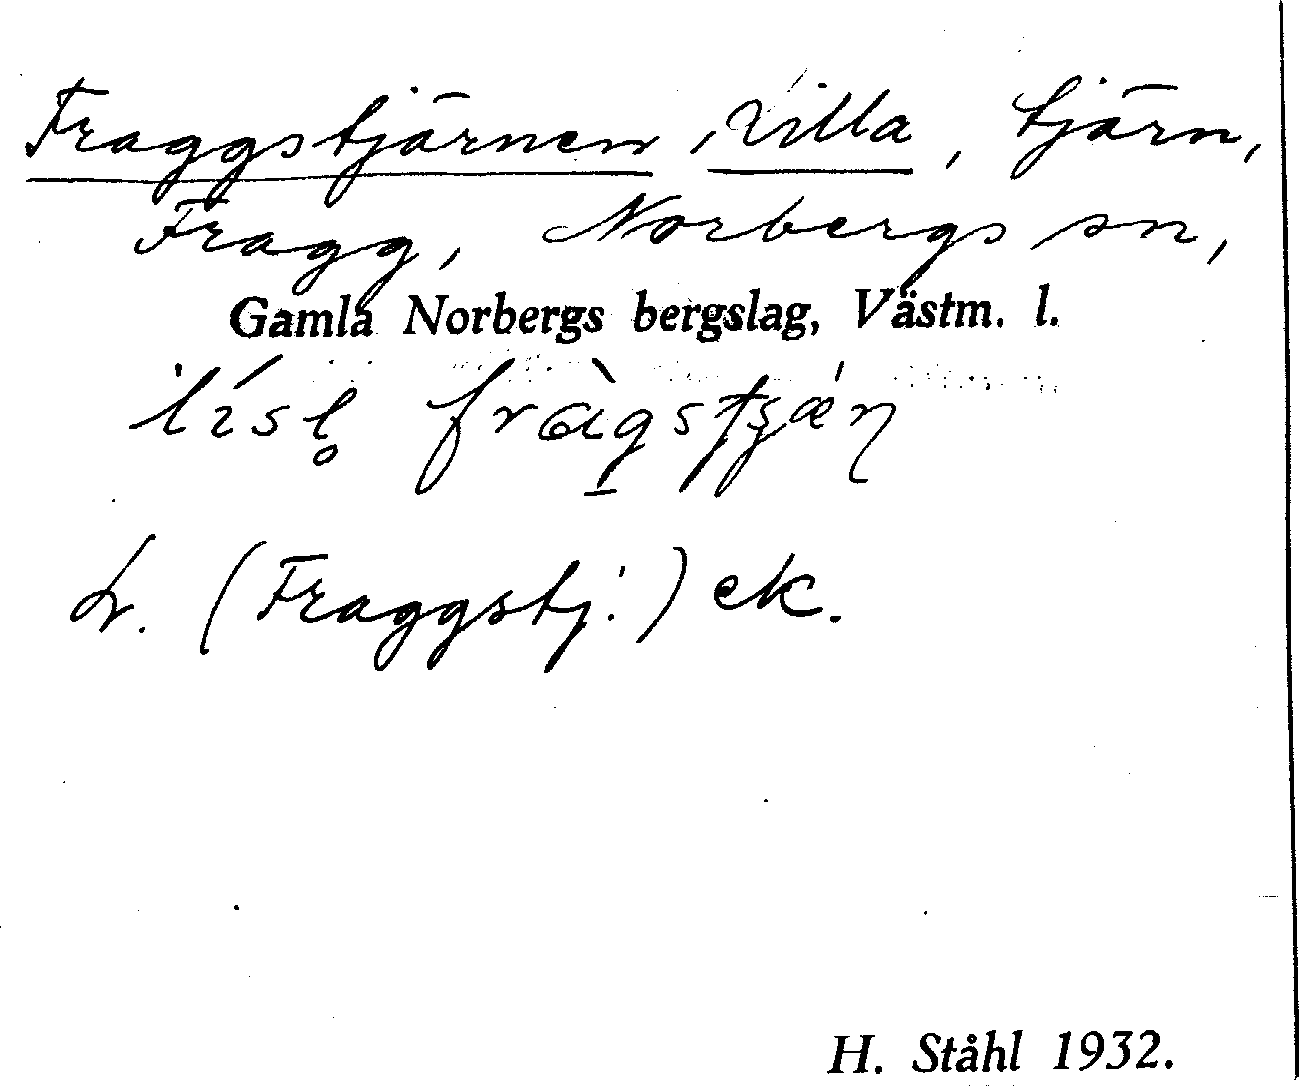 Fraggstjärnen, Lilla, tjärn,
Fragg, Norbergs sn,
Gamla Norbergs bergslag, Västm. l.
(Fraggstj.) ek.
H. Ståhl 1932.